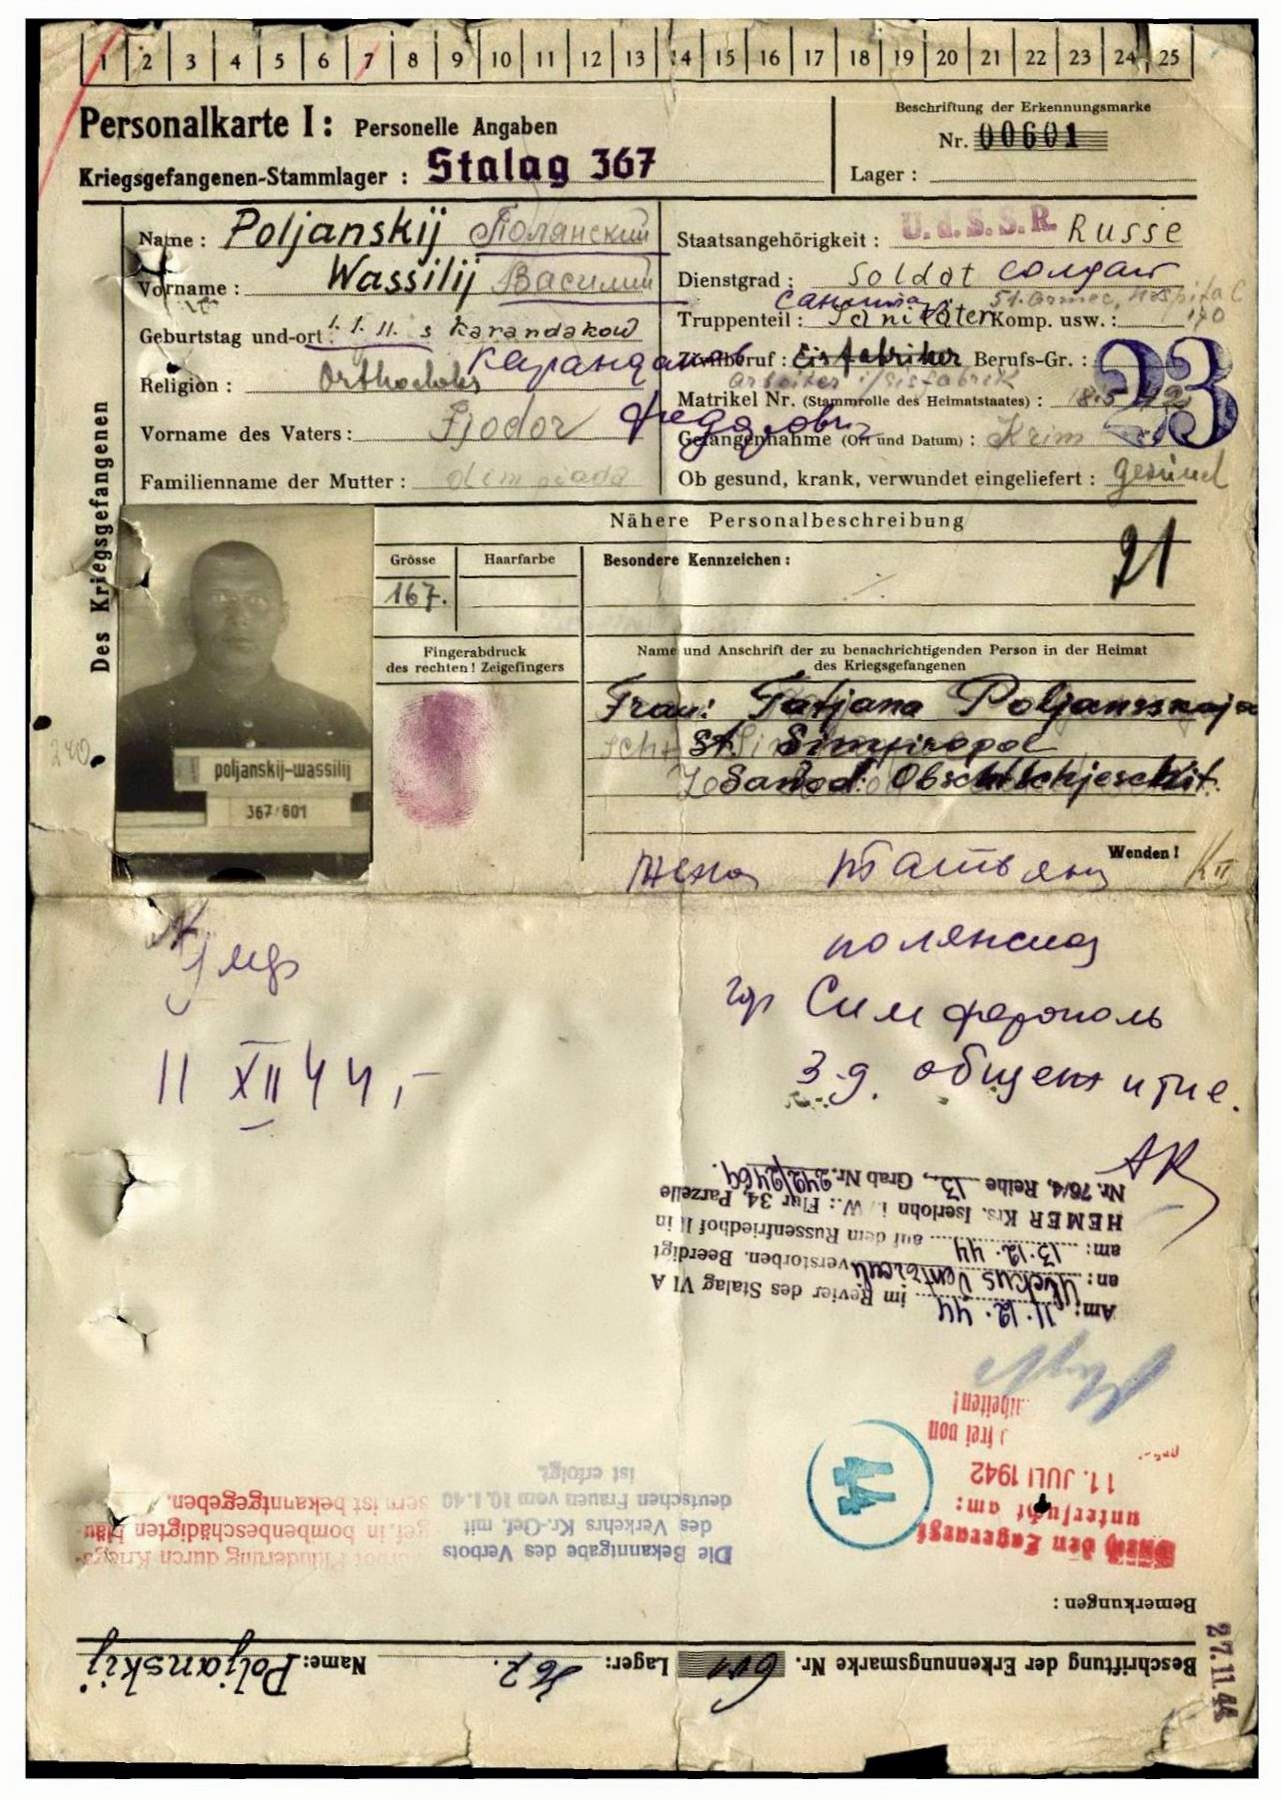 1 2 3 4 5 6 7 8 9 10 11 12 13 14 15 16 17 18 19 20 21 22 23 24 25
Personalkarte I: Personelle Angaben
Kriegsgefangenen-Stammlager : Stalag 367
Beschriftung der Erkennungsmarke
Nr. 00601
Lager :
Des Kriegsgefangenen
Name : Poljanskij Полянский
Vorname : Wassilij Василий
Geburtstag und-ort : 1.1.11. s Karandakow
Карандаков
Religion : Orthodoks
Vorname des Vaters : Fjodor Федорович
Familienname der Mutter :
Staatsangehörigkeit : U.d.S.S.R. Russe
Dienstgrad : Soldat солдат
51. Armee, Hospital
Truppenteil : Sanitäter Komp. usw. : 170
Zivilberuf : Eisfabriker Berufs-Gr. : 23
Arbeiter i/Eisfabrik
Matrikel Nr. (Stammrolle des Heimatstaates) :
Gefangennahme (Ort und Datum) : Krim
Ob gesund, krank, verwundet eingeliefert : gesund
Nähere Personalbeschreibung
Grösse
167.
Haarfarbe
Besondere Kennzeichen :
21
Fingerabdruck
des rechten! Zeigefingers
Name und Anschrift der zu benachrichtigenden Person in der Heimat
des Kriegsgefangenen
Frau: Tatjana Poljansskaja
St. Simpiropol
Sawod: Obschtschjeschit.
poljanskij-wassilij
367/601
Wenden!
240
жена Татьяна
полянская
гор Симферополь
З-д. общежитие.
Умер
11 XII 44,-
АК
Am: 11.12.44 im Revier des Stalag VI A
an: verstorben. Beerdigt
am: 13.12.44 auf dem Russenfriedhof II in
HEMER Krs. Iserlohn i. W.: Flur 34, Parzelle
Nr. 76/4, Reihe 13, Grab Nr. 242/2464.
Beschriftung der Erkennungsmarke Nr. 601 Lager: 367. Name: Poljanskij
Bemerkungen :
Durch den Lagerarzt
untersucht am:
11. JULI 1942
frei von
Die Bekanntgabe des Verbots
des Verkehrs Kr.-Gef. mit
deutschen Frauen vom 10.1.40
ist erfolgt.
Plünderung durch Kriegs-
gef. in bombenbeschädigten
ist bekanntgegeben.
27.11.44